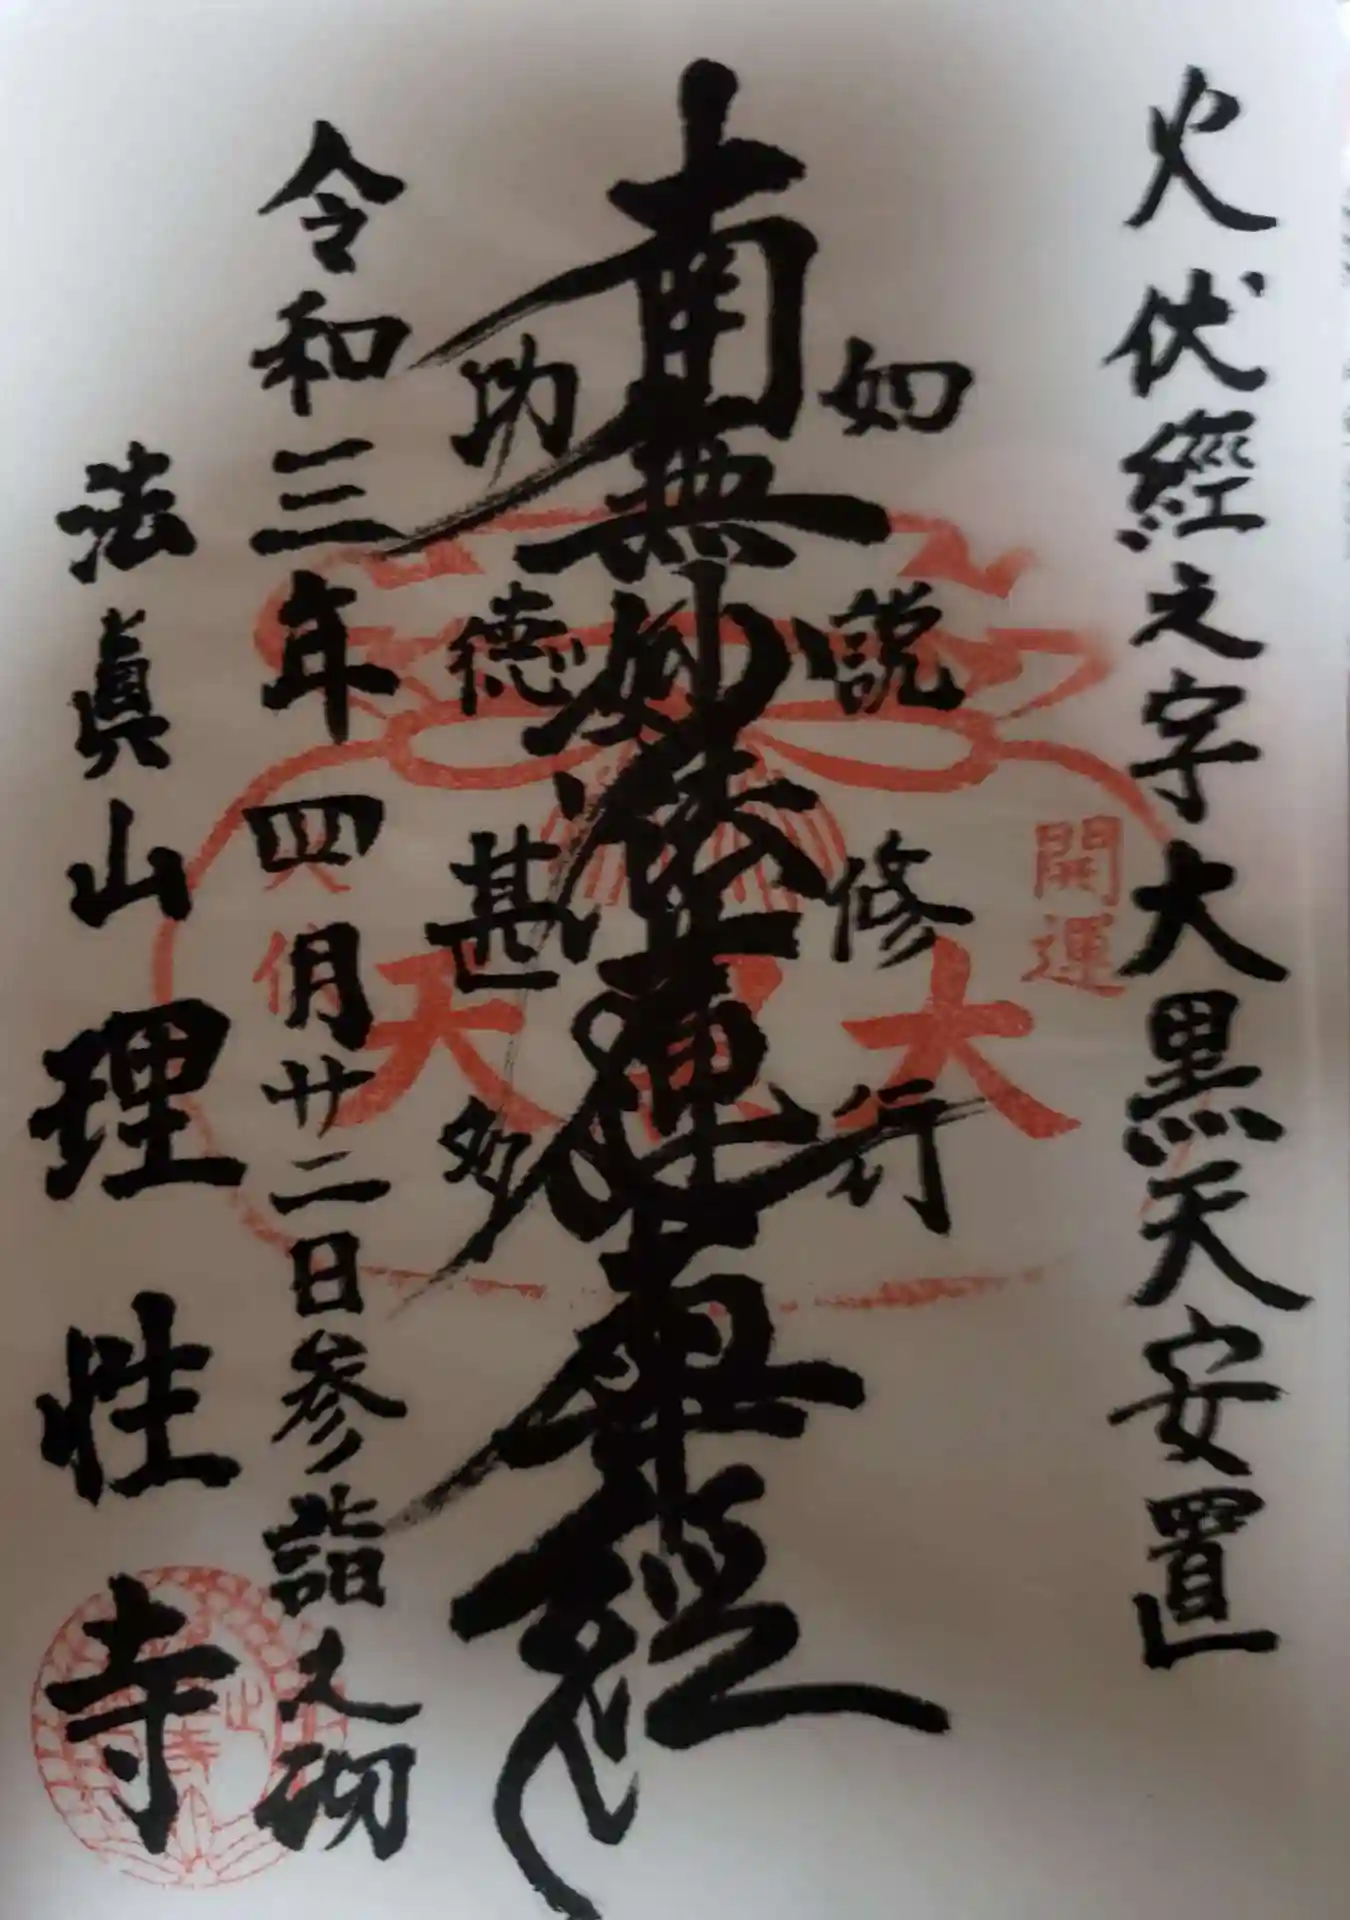 火伏經之字大黒天安置
如説修行
南無妙法蓮華経
助徳甚多
令和三年四月廿二日参詣之砌
法眞山理性寺
開運
大黒天